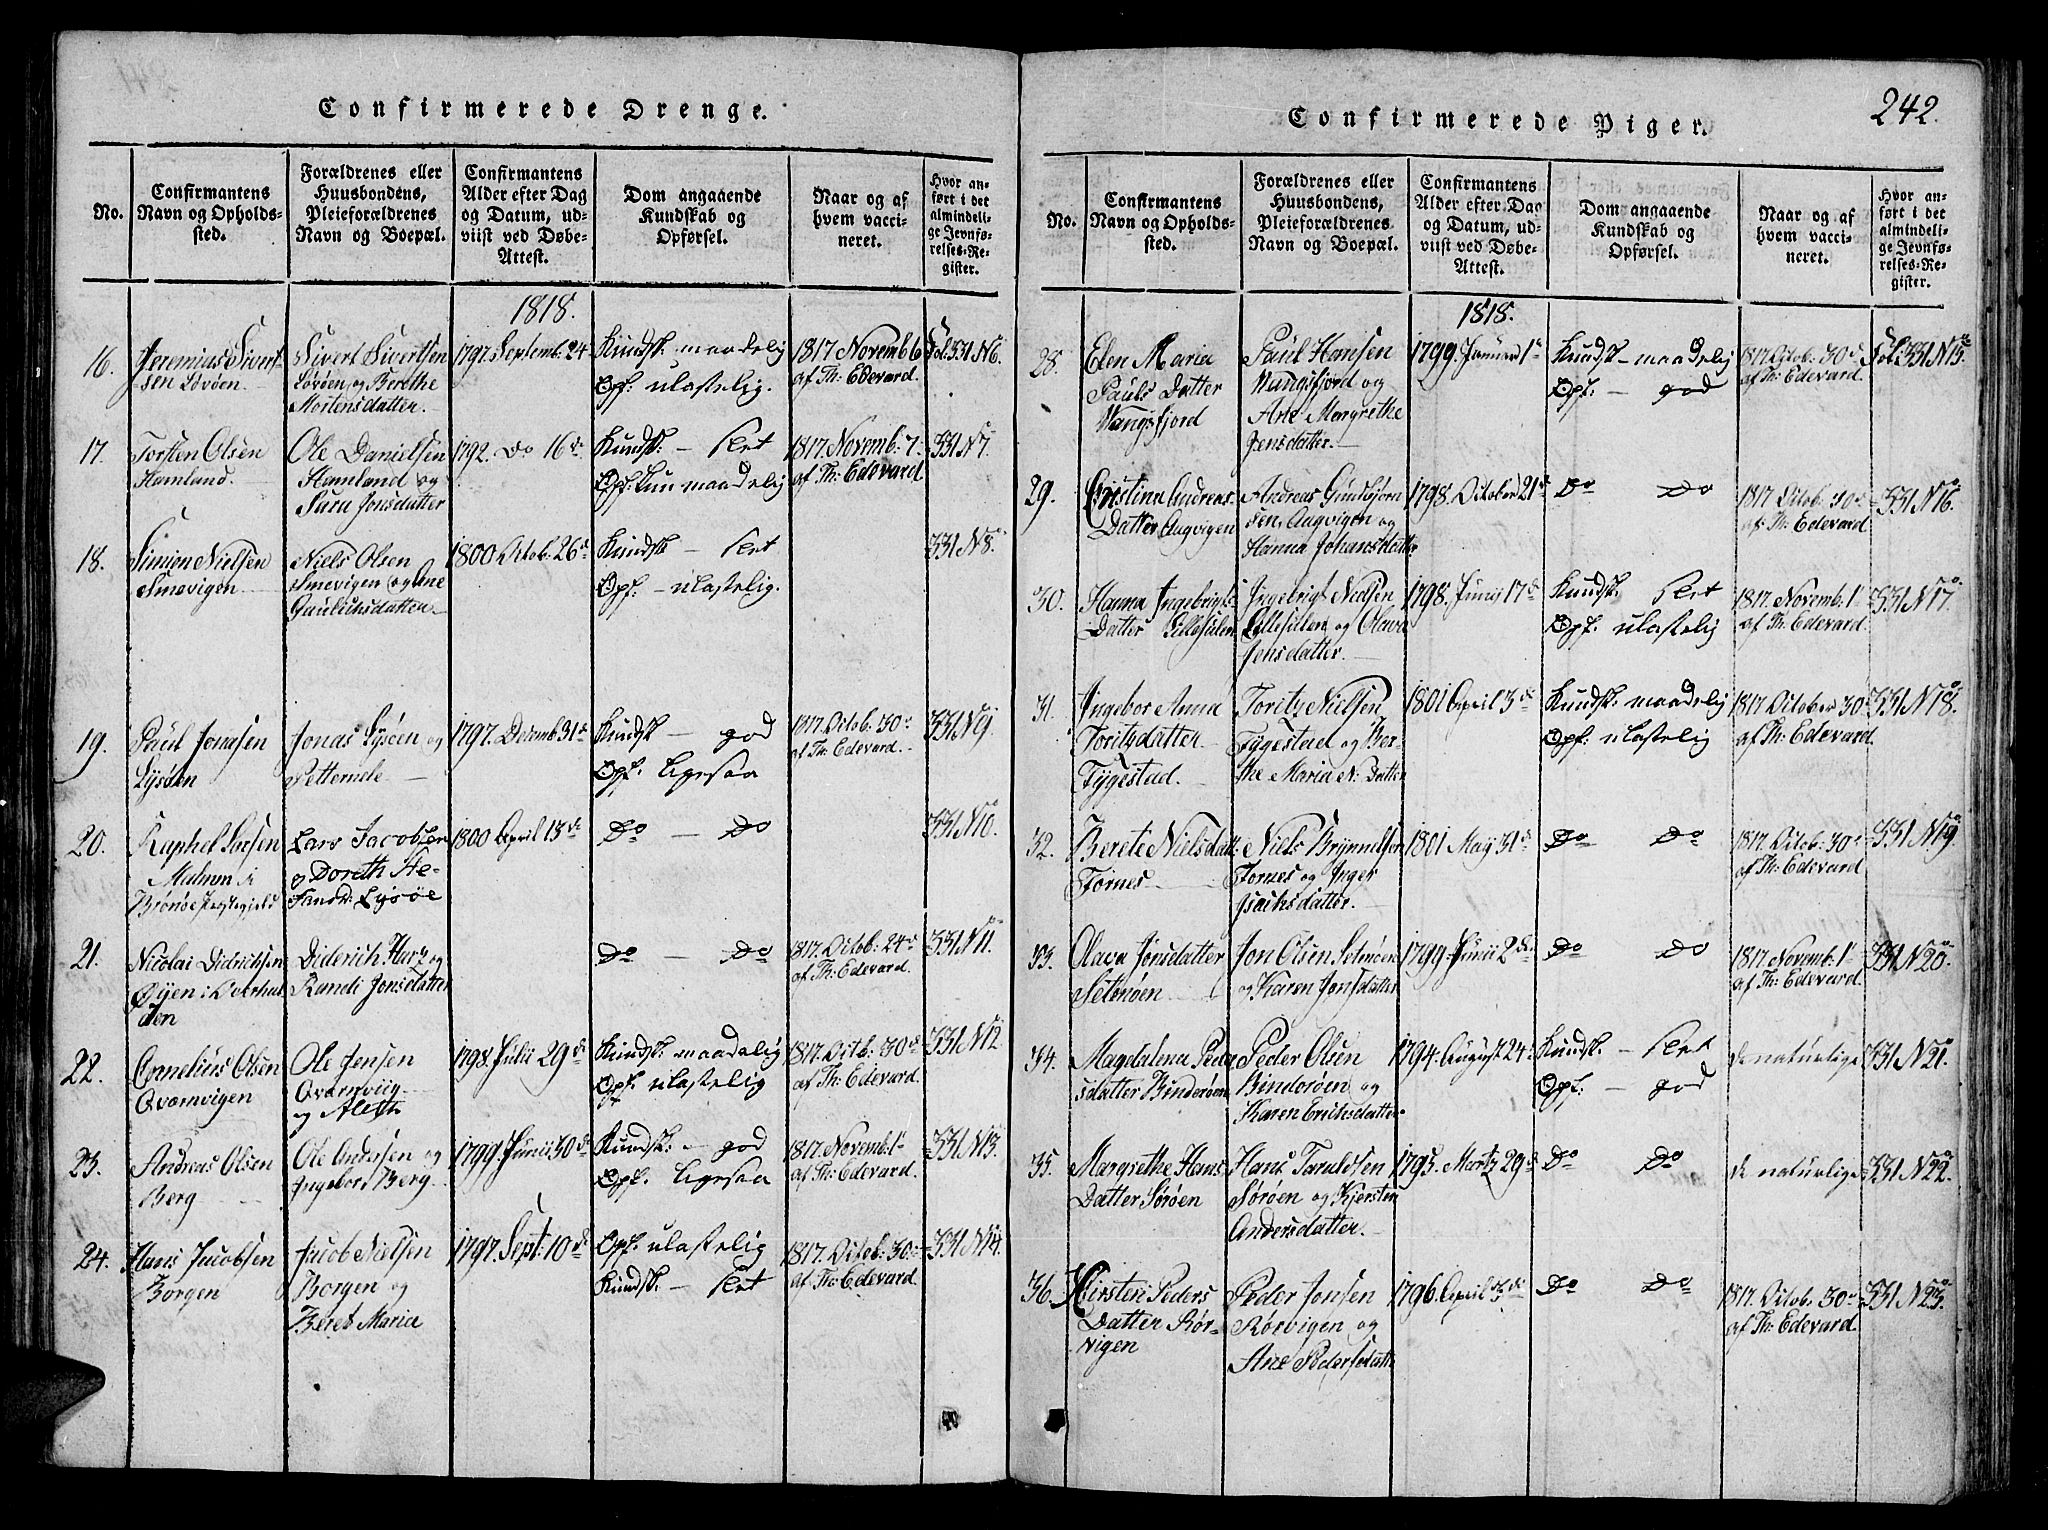 242.
Confirmerede Drenge.
No.
Confirmantens
Navn og Opholds-
sted.
Forældrenes eller
Huusbondens,
Pleieforældrenes
Navn og Boepæl.
Confirmantens
Alder efter Dag
og Datum, ud-
viist ved Døbe-
Attest.
Dom angaaende
Kundskab og
Opførsel.
Naar og af
hvem vacci-
neret.
Hvor an-
ført i det
almindeli-
ge Jevnfø-
relses-Re-
gister.
1818.
16.
Jeremias Sivert-
sen Sørøen
Sivert Sivertsen
Sørøen og Berethe
Mortensdatter.
1797. Septemb. 24
Kundsk. maadelig
Opf. ulastelig.
1817 Novemb 6
af Th: Edevard.
Fol: 331 No 6.
17.
Torsten Olsen
Hamland.
Ole Danielsen
Hamland og
Sara Jonsdatter
1792. Do 16 d.
Kundsk: - slet
Opf: kun maadelig
1817. Novemb: 7.
af Th: Edevard
331 No 7.
18.
Simon Nielsen
Smevigen.
Niels Olsen
Smevigen og Ane
Gaulichsdatter
1800 Octob: 26 d
Kundsk - slet
Opf: - ulastelig.
331 No 8.
19.
Paul Jonasen
Lysøen
Jonas Lysøen og
Petternele
1797. Decemb 31 d
Kundsk - god
Opf: ligesaa
1817. Octob: 30 d
af Th: Edevard.
331 No 9.
20.
Raphel Larsen
Malmn i
Brønøe Præstegjeld
Lars Jacobsen
og Doreth He-
Sand: Lysøe
1800 April 13 de
Do - Do
331 No 10.
21.
Nicolai Didrichsen
Øijen i Overhal-
den
Diderich Harz og
Randi Jonsdatter
Do - Do
1817. Octob: 24 d
af Th: Edevard.
331 No 11.
22.
Cornelius Olsen
Qvamvigen
Ole Jensen
Qvamviig
og Aleth
1798. Julii 29 de
Kundsk: maadelig
Opf: ulastelig
1817. Octb: 30 d
af Th: Edevard.
331 No 12
23.
Andreas Olsen
Berg
Ole Andersen og
Ingebor Berg.
1799. Junii 30 d
Kundsk: - god
Opf: ligesaa
1817. Novemb: 1
af Th: Edevard.
331 No 13.
24.
Hans Jacobsen
Borgen
Jacob Nielsen
Borgen og
Beret Maria
1797. Sept: 10 d
Opf: ulastelig
Kundsk: - slet
1817. Octob: 30.
af Th: Edevard.
331 No 14.
Confirmerede Piger.
No.
Confirmantens
Navn og Opholds-
sted.
Forældrenes eller
Huusbondens,
Pleieforældrenes
Navn og Boepæl.
Confirmantens
Alder efter Dag
og Datum, ud-
viist ved Døbe-
Attest.
Dom angaaende
Kundskab og
Opførsel.
Naar og af
hvem vacci-
neret.
Hvor an-
ført i det
almindeli-
ge Jevnfø-
relses-Re-
gister.
1818.
28.
Elen Maria
Pauls Datter
Wangsfjord
Paul Hansen
Wangsfjord og
Ane Margrethe
Jensdatter.
1799. Januar 1 d
Kundsk - maadelig
Opf: - god
1817 Octob. 30 d
af Th: Edevard.
Fol: 331 No 15.
29.
Cristina Andreas
Datter Aagvigen
Andreas Gundbjørn
sen, Aagvigen og
Hanna Johansdatter
1798. October 21 d
Do Do
1817 Octob. 30 d
af Th: Edevard
331 No 16.
30.
Hanna Ingebrigts
Datter Lillesulen
Ingebrigt Nielsen
Lillesulen og Olava
Jonsdatter.
1798. Junij 17 d
Kundsk. slet
Opf. ulastelig
1817. Novemb. 1
af Th: Edevard.
331 No 17.
31.
Ingebor Anna
Toritzdatter
Tygestad.
Toritz Nielsen
Tygestad og Ber-
the Maria N: Datter
1801 April 3 d
Kundsk: maadelig
Opf: ulastelig
1817 October 30
af Th: Edevard.
331 No 18.
32.
Berete Nielsdatt:
Fornes
Niels Brynnelsen
Fornes og Inger
Isachsdatter.
1801 May 31 d
Do Do
1817. Octob: 30
af Th: Edevard
331 No 19.
33.
Olava Jonsdatter
Setsnøen
Jon Olsen Setsnøen
og Karen Jonsdatter
1799. Junii 2 d
Do Do
1817 Novemb: 1
af Th: Edevard.
331 No 20.
34.
Magdalena Peder
sdatter Binderøen
Peder Olsen
Binderøen og
Karen Erichsdatter
1794. August 24
Kundsk. - slet
Opf: - god
de naturlige
331 No 21.
35.
Margrethe Hans
Datter Sørøen
Hans Taraldsen
Sørøen og Kjersten
Andersdatter.
1795. Martz 29 d
Do Do
de naturlige
331 No 22.
36.
Kirsten Peders
Datter Rør-
vigen
Peder Jonsen
Rørvigen og
Ane Pedersdatt:
1796 April
Do Do
1817. Octob: 30
af Th: Edevard.
331 No 23.